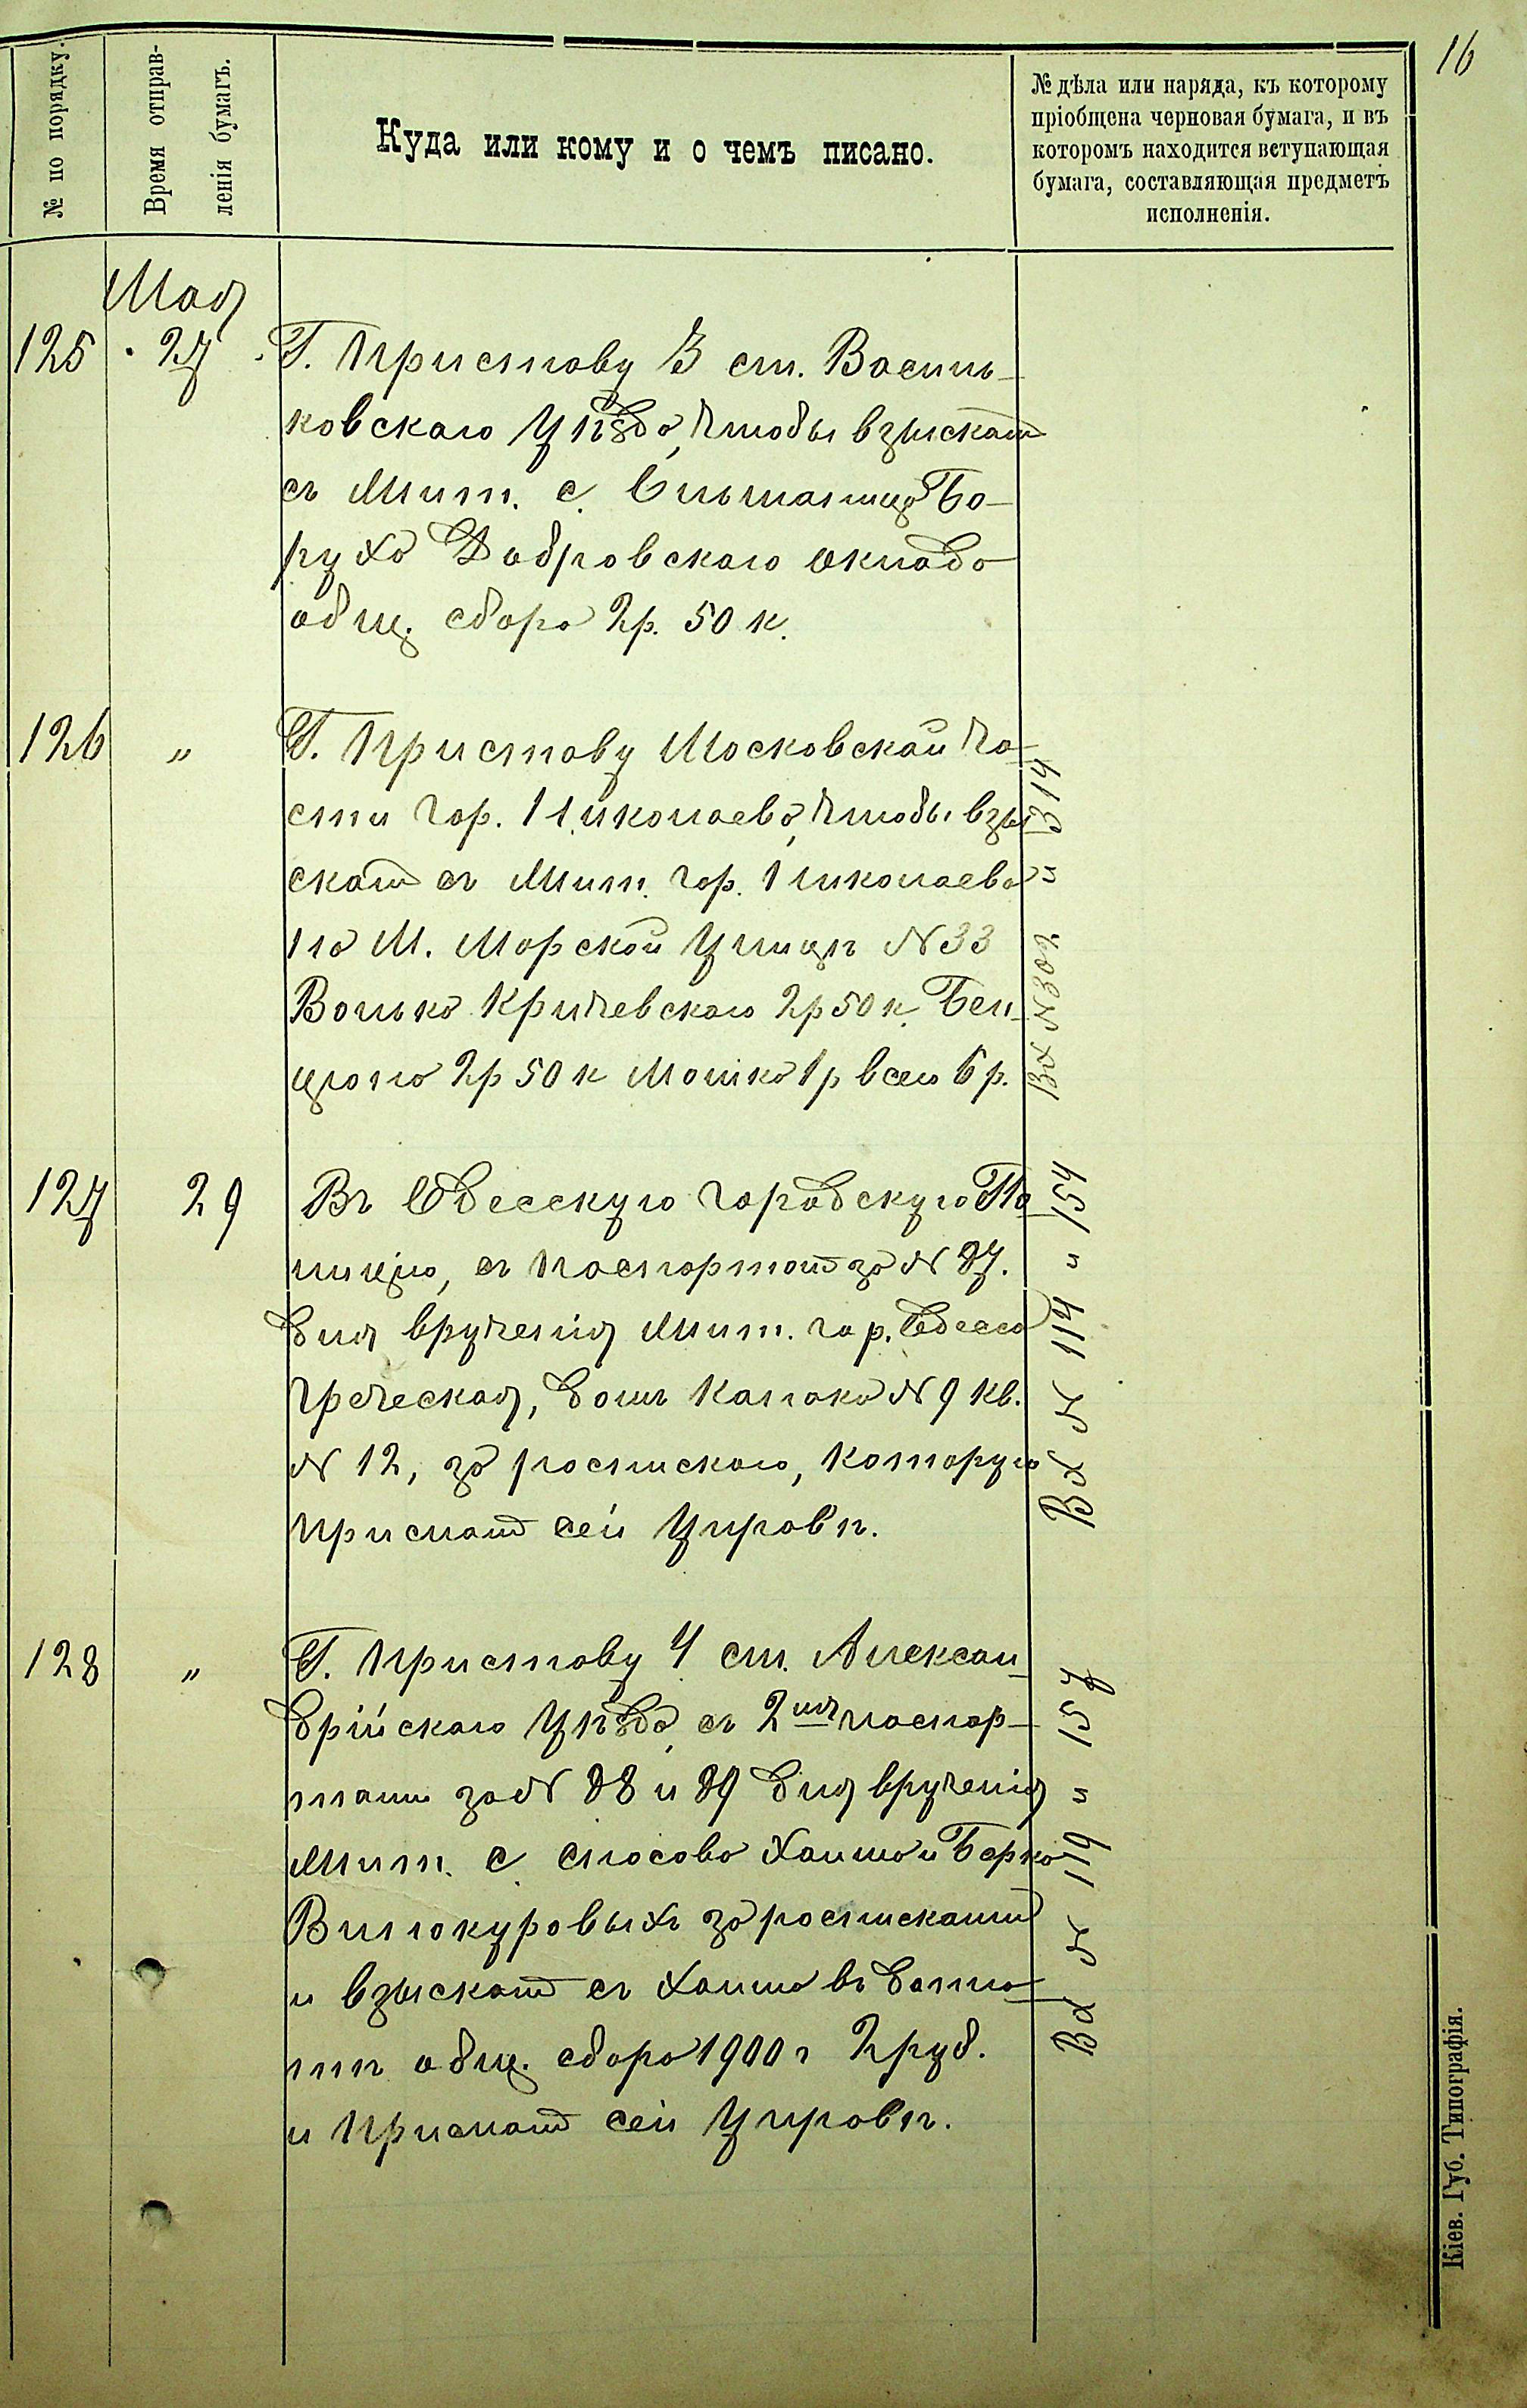 16
№ по порядку.
Время отправ-
ленія бумагъ.
Куда или кому и о чемъ писано.
№ дѣла или наряда, къ которому
пріобщена черновая бумага, и въ
которомъ находится вступающая
бумага, составляющая предметъ
исполненія.
Мая
125 27 Г. Приставу 3 ст. Василь-
ковскаго Уѣзда, чтобы взыскать
съ Мищ. с. Ольшаница Бо-
руха Добровскаго оклада
общ. сбора 2р. 50 к.
126 „ Г. Приставу Московской Ча-
сти гор. Николаева, чтобы взы
скать съ Мищ. гор. Николаева
по М. Морской Улицѣ № 33
Волько Кричевскаго 2р 50 к. Бен-
ціона 2р 50 к Мошко 1р всего 6 р.
Вх № 302 и 314
127 29 Въ Одесскую Городскую По-
лицію, съ паспортомъ за № 87.
для врученія Мищ. гор. Одесса
Греческая, домъ № 9 кв.
№ 12, за роспискою, которую
прислать сей Управѣ.
Вх № 114 и 154
128 „ Г. Приставу 4 ст. Алексан-
дрійскаго Уѣзда, съ 2мя паспор-
тами за № 88 и 89 для врученія
Мищ. с. Спасово Хаима и Берко
Винокуровыхъ за росписками
и взыскать съ Хаима въ
общ. сбора 1900 г 2 руб.
и прислать сей Управѣ.
Вх № 119 и 157
Кіев. Губ. Типографія.